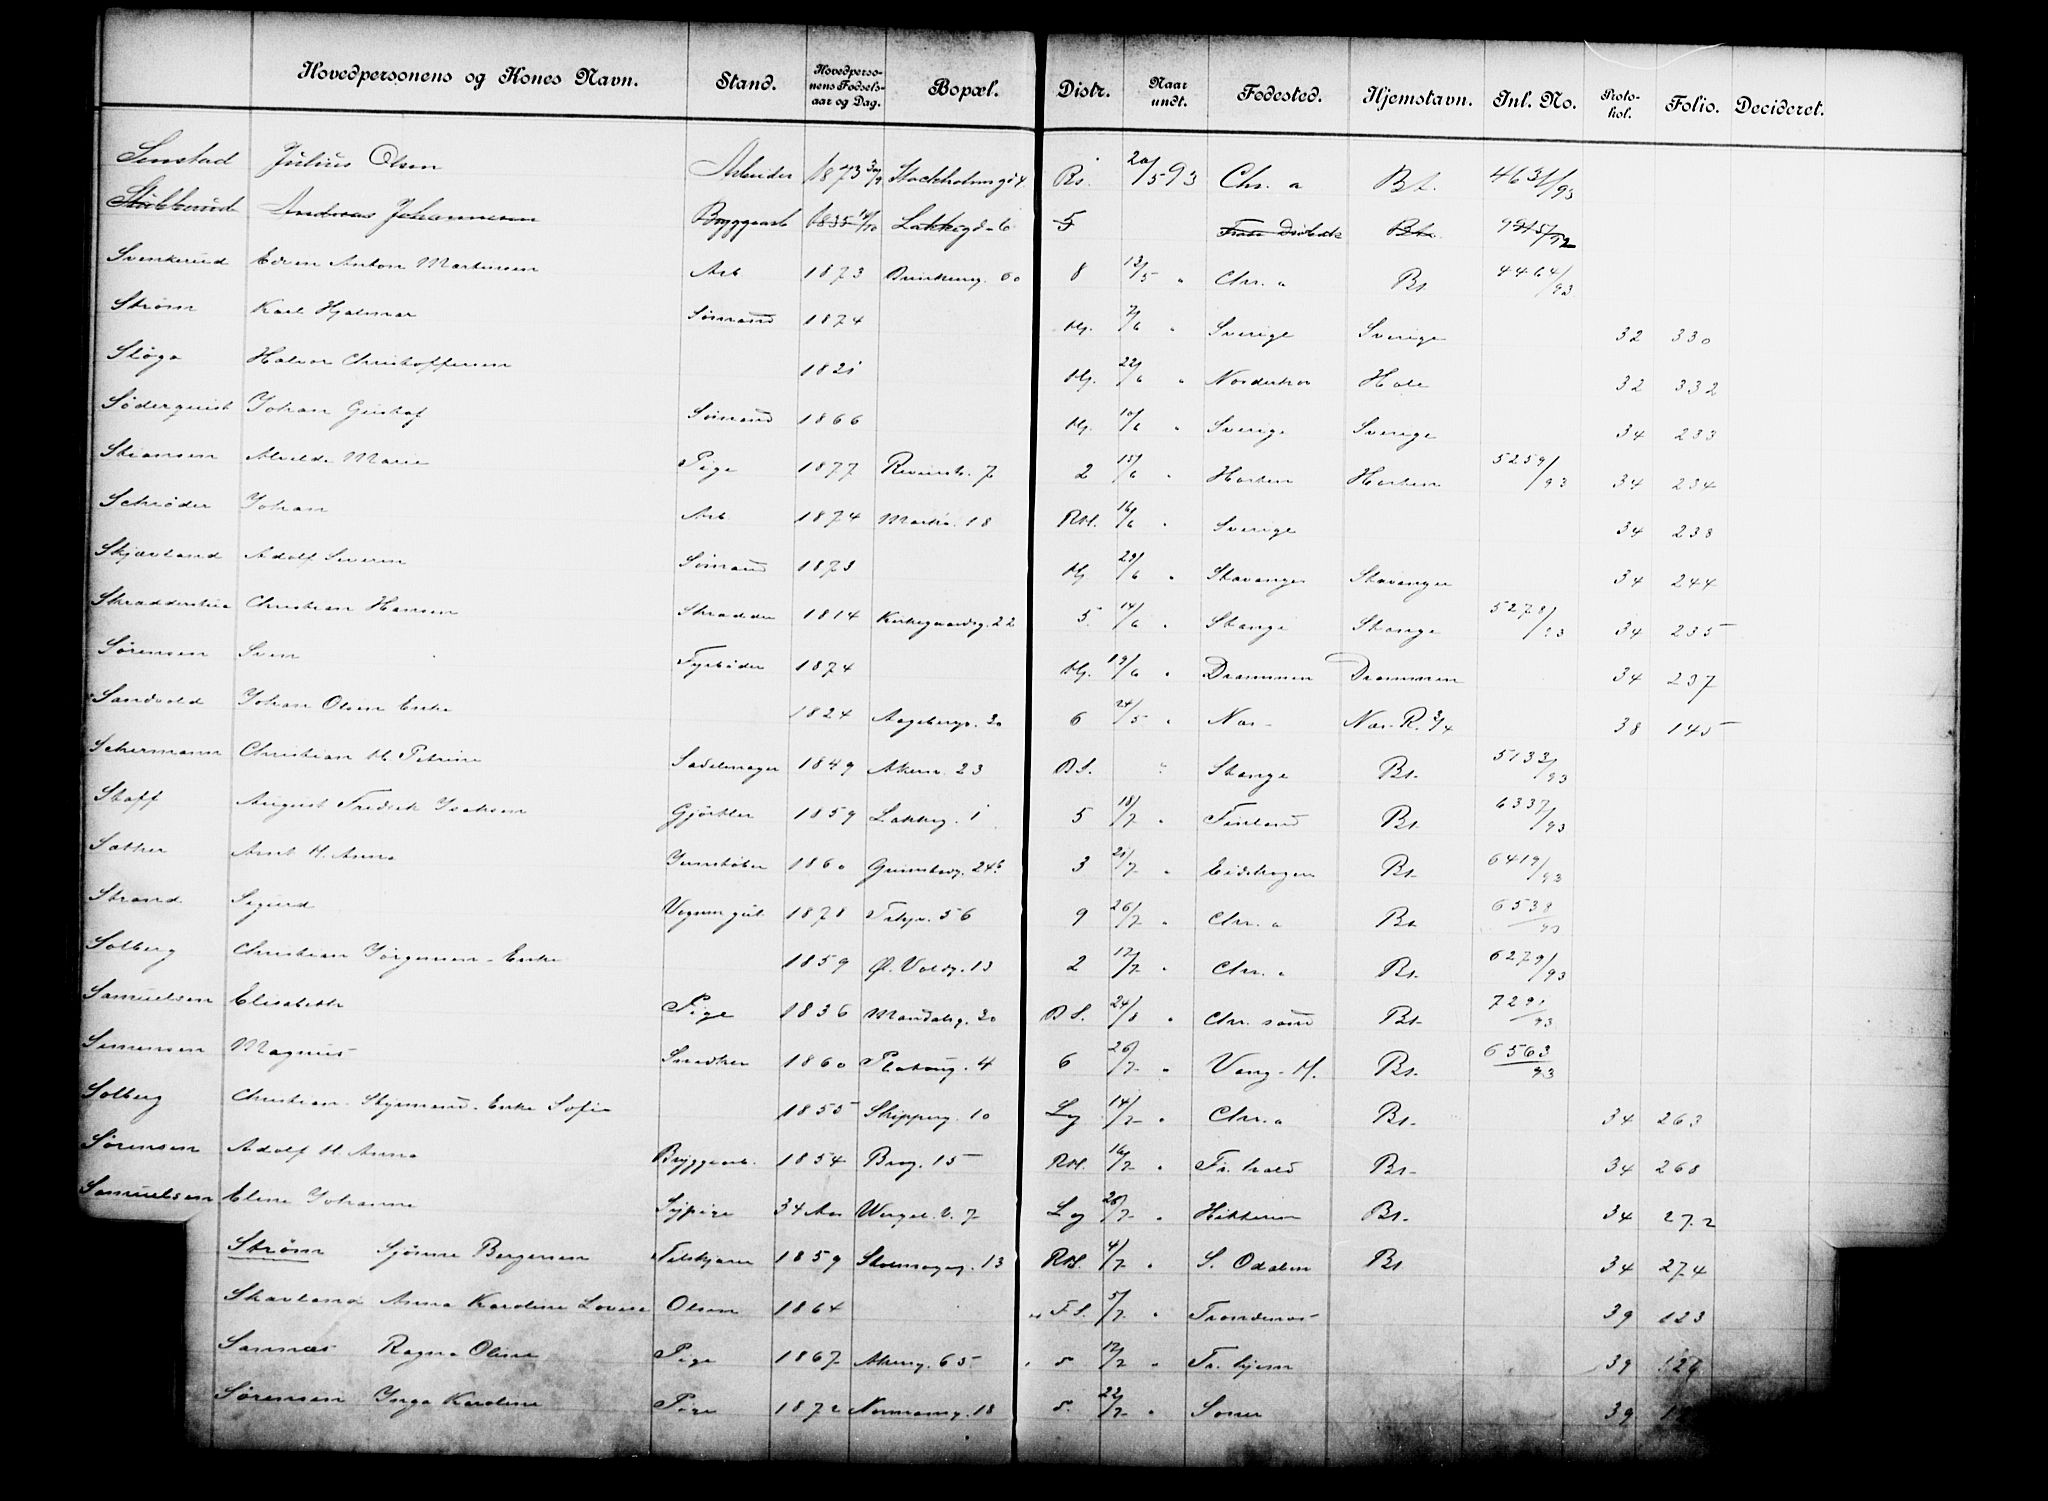 Hovedpersonens og Kones Navn. Stand. Hovedpersonens Fødselsaar og Dag. Bopæl. Distr. Naar undt. Fødested. Hjemstavn. Inl. No. Protokol. Folio. Decideret.
Senstad Julius Olsen Arbeider 1873 30/9 Stockholmsgd 4 Rs. 20/5 93 Chr. a Bt. 4631/93
Andreas Johannesen Bryggearb 1835 Lakkegd 6 5 Bt.
Svenkerud Edvin Anton Martinsen Arb 1873 60 8 12/5 " Chr. a Bt. 4464/93
Strøm Karl Hjalmar Sømand 1874 Hj. 7/6 " Sverige Sverige 32 330
Sløga Halvor Christoffersen 1821 Hj. 22/6 " Norderhov Hole 32 332
Söderquist Johan Gustaf Sømand 1866 Hj. 10/6 " Sverige Sverige 34 233
Stiansen Alvilde Marie Pige 1877 Revierst. 7 2 15/6 " Horten Horten 5259/93 34 234
Schrøder Johan Arb. 1874 18 RH. 16/6 " Sverige 34 238
Skjævland Adolf Severin Sømand 1873 Hj 23/6 " Stavanger Stavanger 34 244
Christian Hansen Skrædder 1814 Kirkegaardsg. 22 5. 14/6 " Stange Stange 5278/93 34 235
Sørensen Sven Fyrbøder 1874 Hj. 19/6 " Drammen Drammen 34 237
Sandvold Johan Olsen Enke 1824 Aagebergv. 30 6 24/5 " Nes Nes R. 3/4 38 145
Schermann Christian H. Petrine Sadelmager 1849 Akersv. 23 BS. " Stange Bt. 5133/93
Staff August Fredrik Isaksen Gjørtler 1859 Lakkeg. 1 5 18/7 " Finland Bt. 6337/93
Sæther Arnt H. Anna Jernstøber 1860 24b 3 21/7 " Eidskogen Bt. 6419/93
Strand Sigurd Vognmgut 1878 56 9 26/7 " Chr. a Bt. 6538/93
Solberg Christian Jørgensen - Enke 1859 Ø. Voldg. 13 2 17/7 " Chr. a Bt. 6279/93
Samuelsen Elisabeth Pige 1836 Mandalsg. 30 BS. 24/8 " Chr. sand Bt. 729 /93
Simensen Magnus Snedker 1860 Platoug. 4 6 26/7 " Vang - H. Bt. 6563/93
Solberg Christian Enke Sofie 1855 Skipperg. 10 Lg 14/7 " Chr. a Bt. 34 263
Sørensen Adolf H. Anna Bryggearb. 1854 Brog. 15 RH. 16/7 " Fr. hald Bt. 34 268
Samuelsen Eline Johanne Sypige 34 Aar Wergel. V. 7 Lg 28/7 " Hitteren Bt. 34 272
Strøm Sjønne Bergersen 1859 13 RH. 4/7 " S. Odalen Bt 34 274
Skavland Anna Karoline Lovise Olsen 1864 F.S. 5/7 " Trondenes 39 123
Sannæs Ragna Oline Pige 1867 Akersg. 65 5 12/7 " Tr. hjem 39
Sørensen Inga Karoline Pige 1872 Normannsg. 18 5. 22/7 " 39